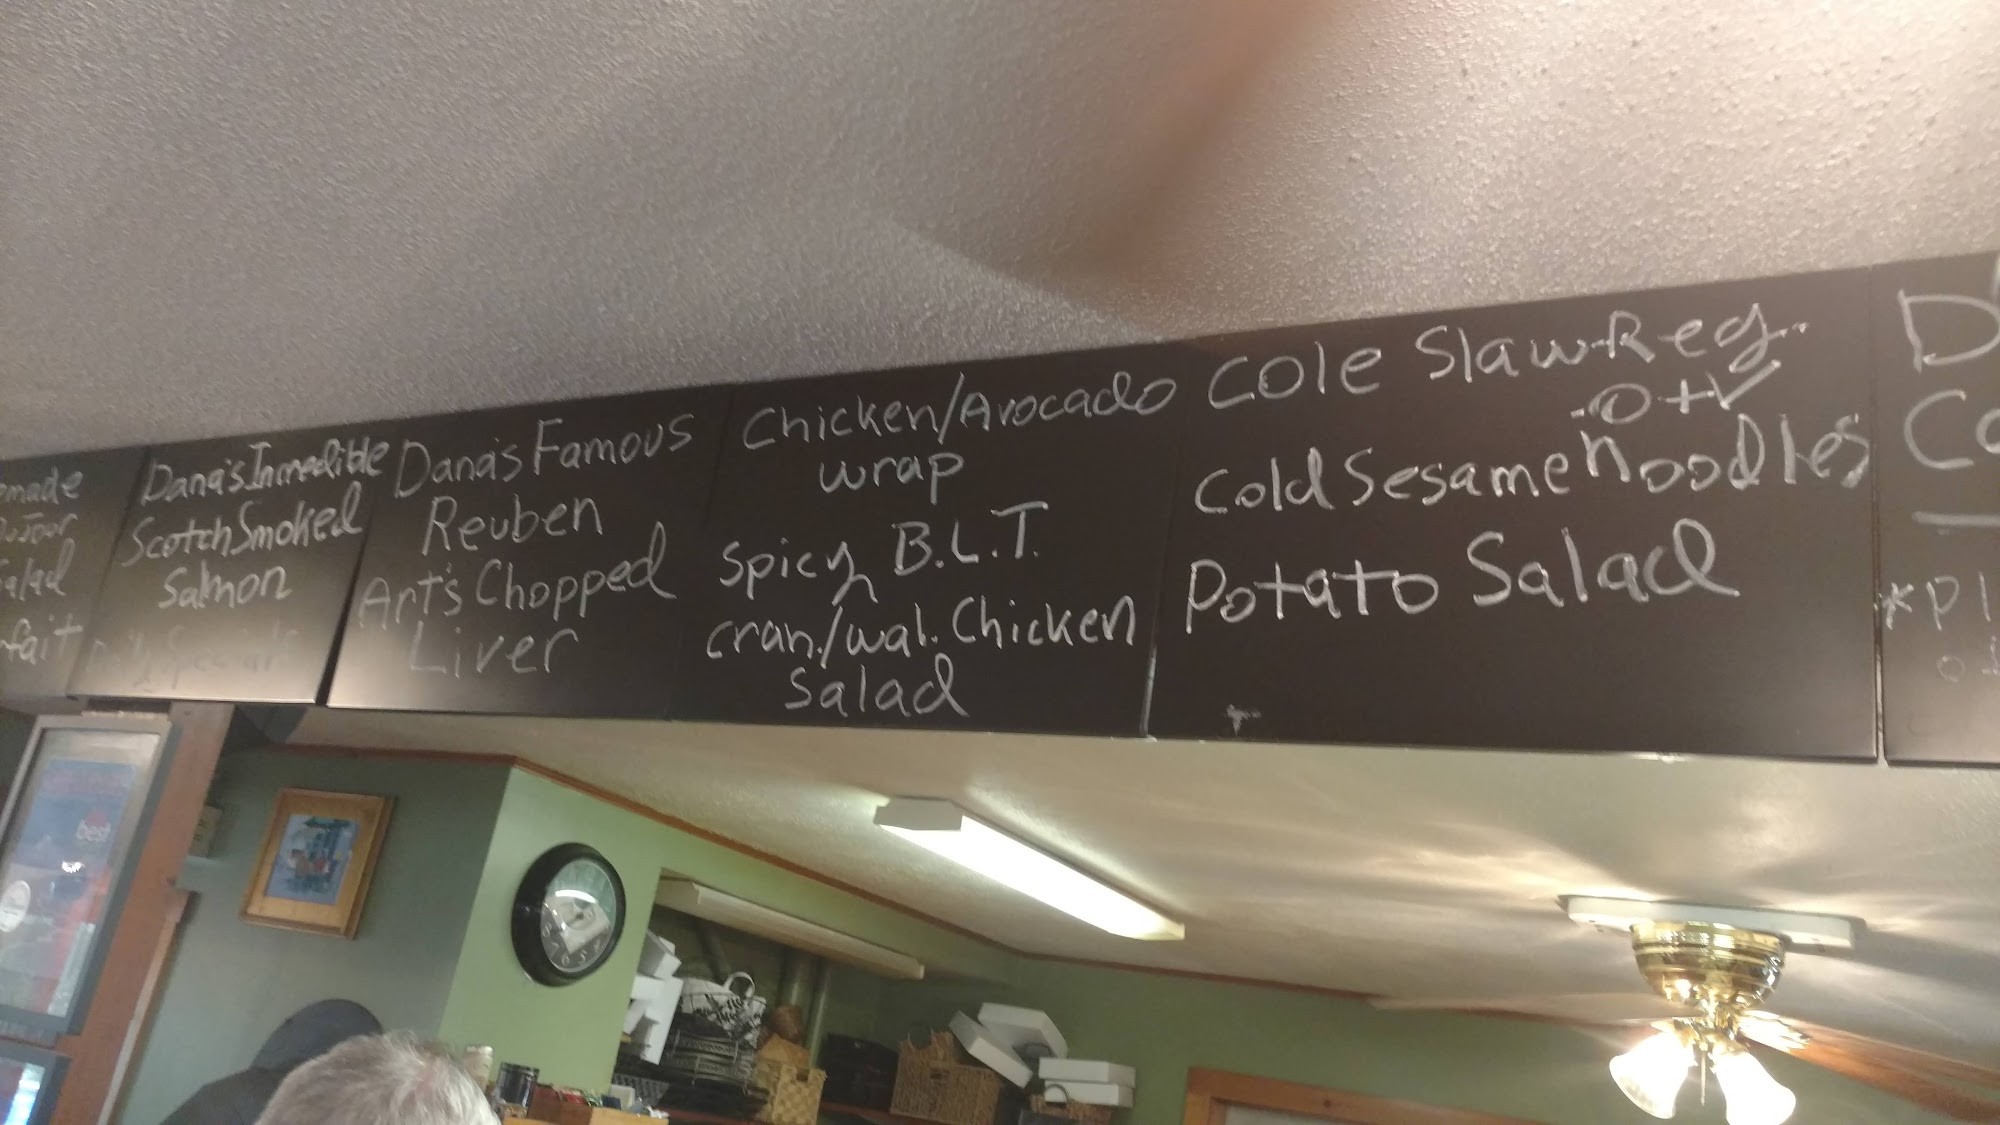 made
Salad
fait
Dana's Incredible
Scotch Smoked
Salmon
Dana's Famous
Reuben
Art's Chopped
Liver
Chicken/Avocado
wrap
Spicy B.L.T.
cran./wal. Chicken
Salad
Cole Slaw-Reg.
Cold Sesame Noodles
Potato Salad
best